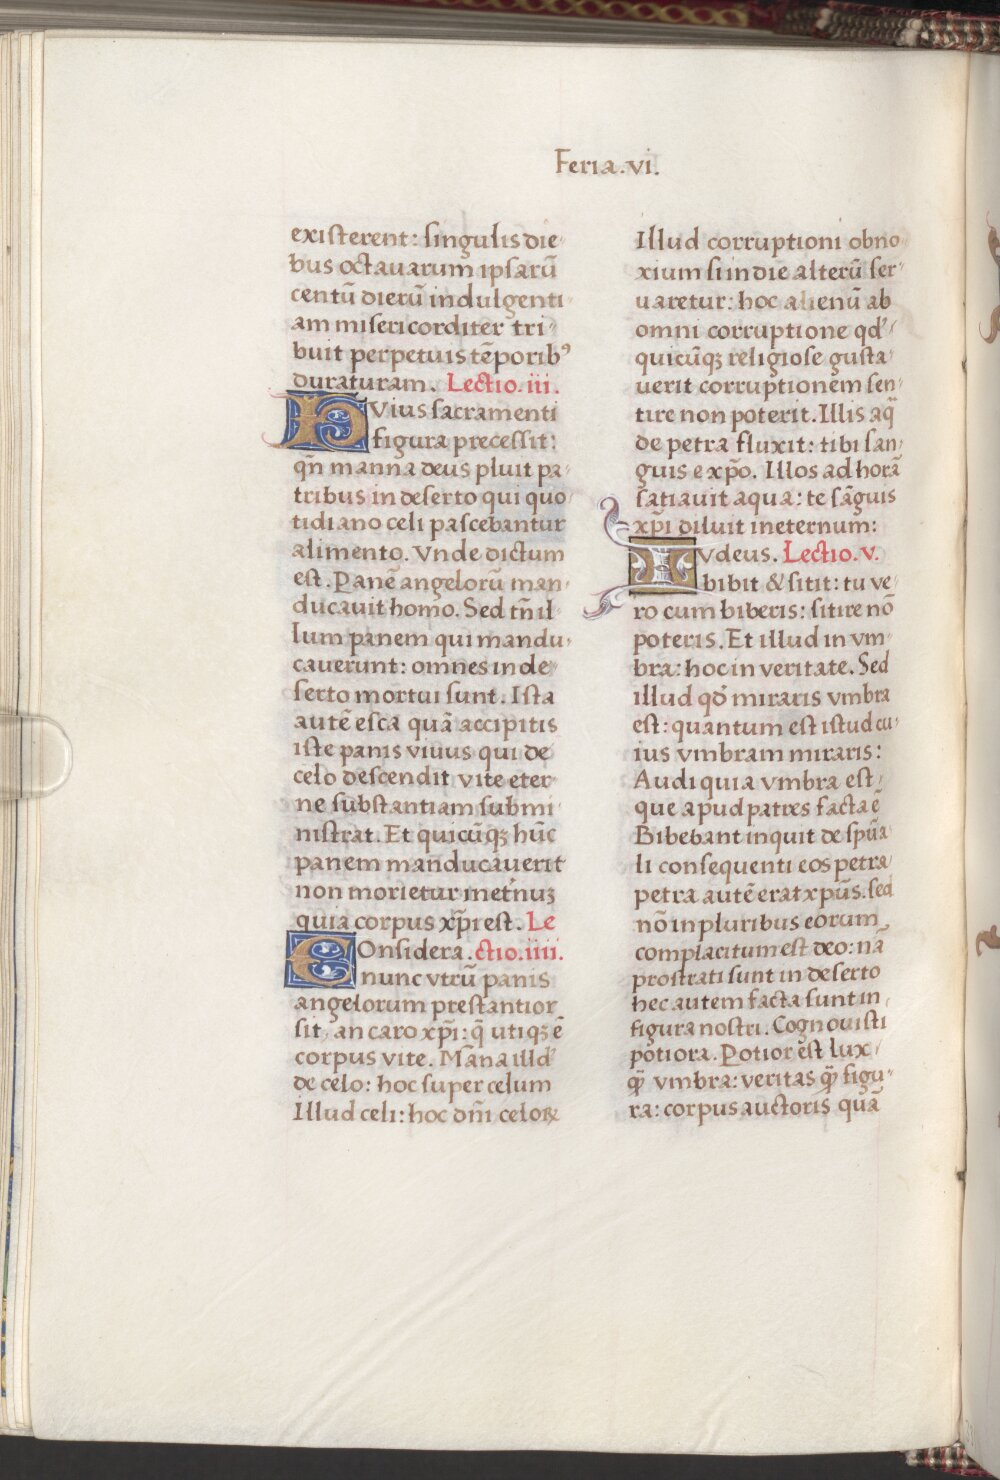 Feria.vi.
existerent: singulis die
bus octauarum ipsarū
centū dierū indulgenti
am misericorditer tri
buit perpetuis tēporibꝰ
duraturam. Lectio.iii.
HVius sacramenti
figura precessit:
qn̄ manna deus pluit pa
tribus in deserto qui quo
tidiano celi pascebantur
alimento. Vnde dictum
est. Panē angelorū man
ducauit homo. Sed tn̄ il
lum panem qui mandu
cauerunt: omnes in de
serto mortui sunt. Ista
autē esca quā accipitis
iste panis viuus qui de
celo descendit vite eter
ne substantiam submi
nistrat. Et quicūqꝫ hūc
panem manducauerit
non morietur inet'nuꝫ
quia corpus xp̄i est. Le
COnsidera. ctio.iiii.
nunc vtrū panis
angelorum prestantior
sit, an caro xp̄i: q̄ utiqꝫ ē
corpus vite. Māna illd'
de celo: hoc super celum
Illud celi: hoc dn̄i celoꝝ
Illud corruptioni obno
xium si in die alterū ser
uaretur: hoc alienū ab
omni corruptione qd'
quicūqꝫ religiose gusta
uerit corruptionem sen
tire non poterit. Illis aq̄
de petra fluxit: tibi san
guis e xp̄o. Illos ad horā
satiauit aqua: te sāguis
xp̄i diluit ineternum:
IVdeus. Lectio.v.
bibit & sitit: tu ve
ro cum biberis: sitire nō
poteris. Et illud in vm
bra: hoc in veritate. Sed
illud qd̄ miraris vmbra
est: quantum est istud cu
ius vmbram miraris:
Audi quia vmbra est
que apud patres facta ē
Bibebant inquit de spūa
li consequenti eos petra
petra autē erat xpūs. sed
nō in pluribus eorum
complacitum est deo: nā
prostrati sunt in deserto
hec autem facta sunt in
figura nostri. Cognouisti
potiora. Potior est lux
qꝫ̄ vmbra: veritas qꝫ̄ figu
ra: corpus auctoris quā